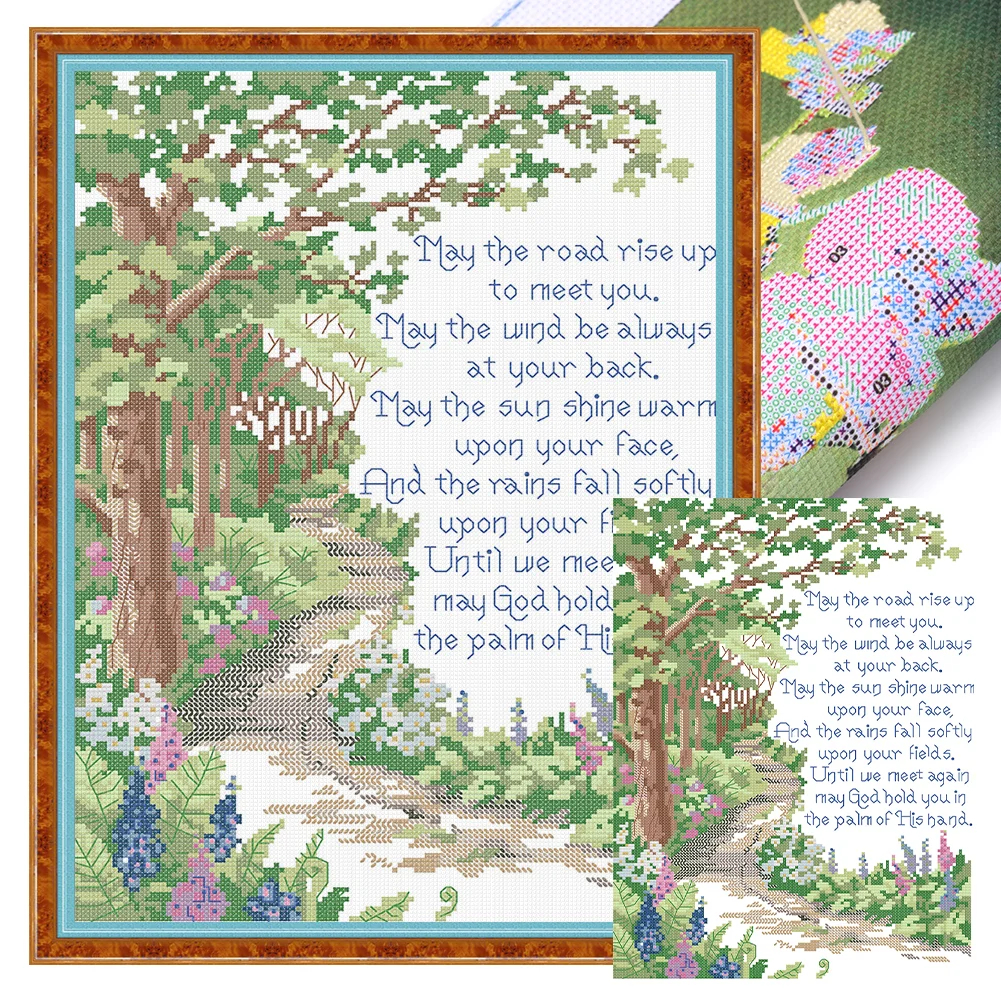 May the road rise up
to meet you.
May the wind be always
at your back.
May the sun shine warm
upon your face,
And the rains fall softly
upon your fi
Until we mee
may God hold
the palm of Hi
03
03
May the road rise up
to meet you.
May the wind be always
at your back.
May the sun shine warm
upon your face,
And the rains fall softly
upon your fields.
Until we meet again
may God hold you in
the palm of His hand.